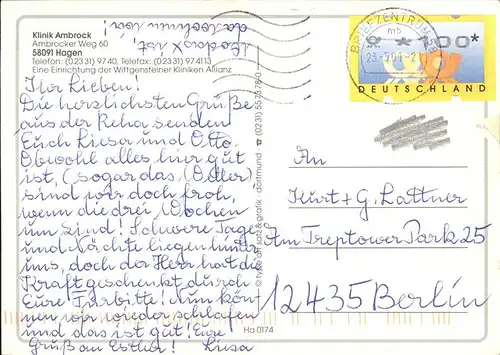 Klinik Ambrock
Ambrocker Weg 60
58091 Hagen
Telefon: (02331) 9740, Telefax: (02331) 974113
Eine Einrichtung der Wittgensteiner Kliniken Allianz
Wo das X ist,
da wohnen wir!
Ihr Lieben!
Die herzlichsten Grüße
aus der Reha senden
Euch Liesa und Otto.
Obwohl alles hier gut
ist, (sogar das Wetter)
sind wir doch froh,
wenn die drei Wochen
um sind! Schwere Tage
und Nächte liegen hinter
uns, doch der Herr hat die
Kraft geschenkt durch
Eure Fürbitte! Nun kön-
nen wir wieder schlafen
und das ist gut! Eure
Gruß an Esther! Liesa
Ha 0174
satz & grafik · dortmund
BRIEFZENTRUM 58
mb
DEUTSCHLAND
An
Kurt + G. Lattner
Am Treptower Park 25
12435 Berlin